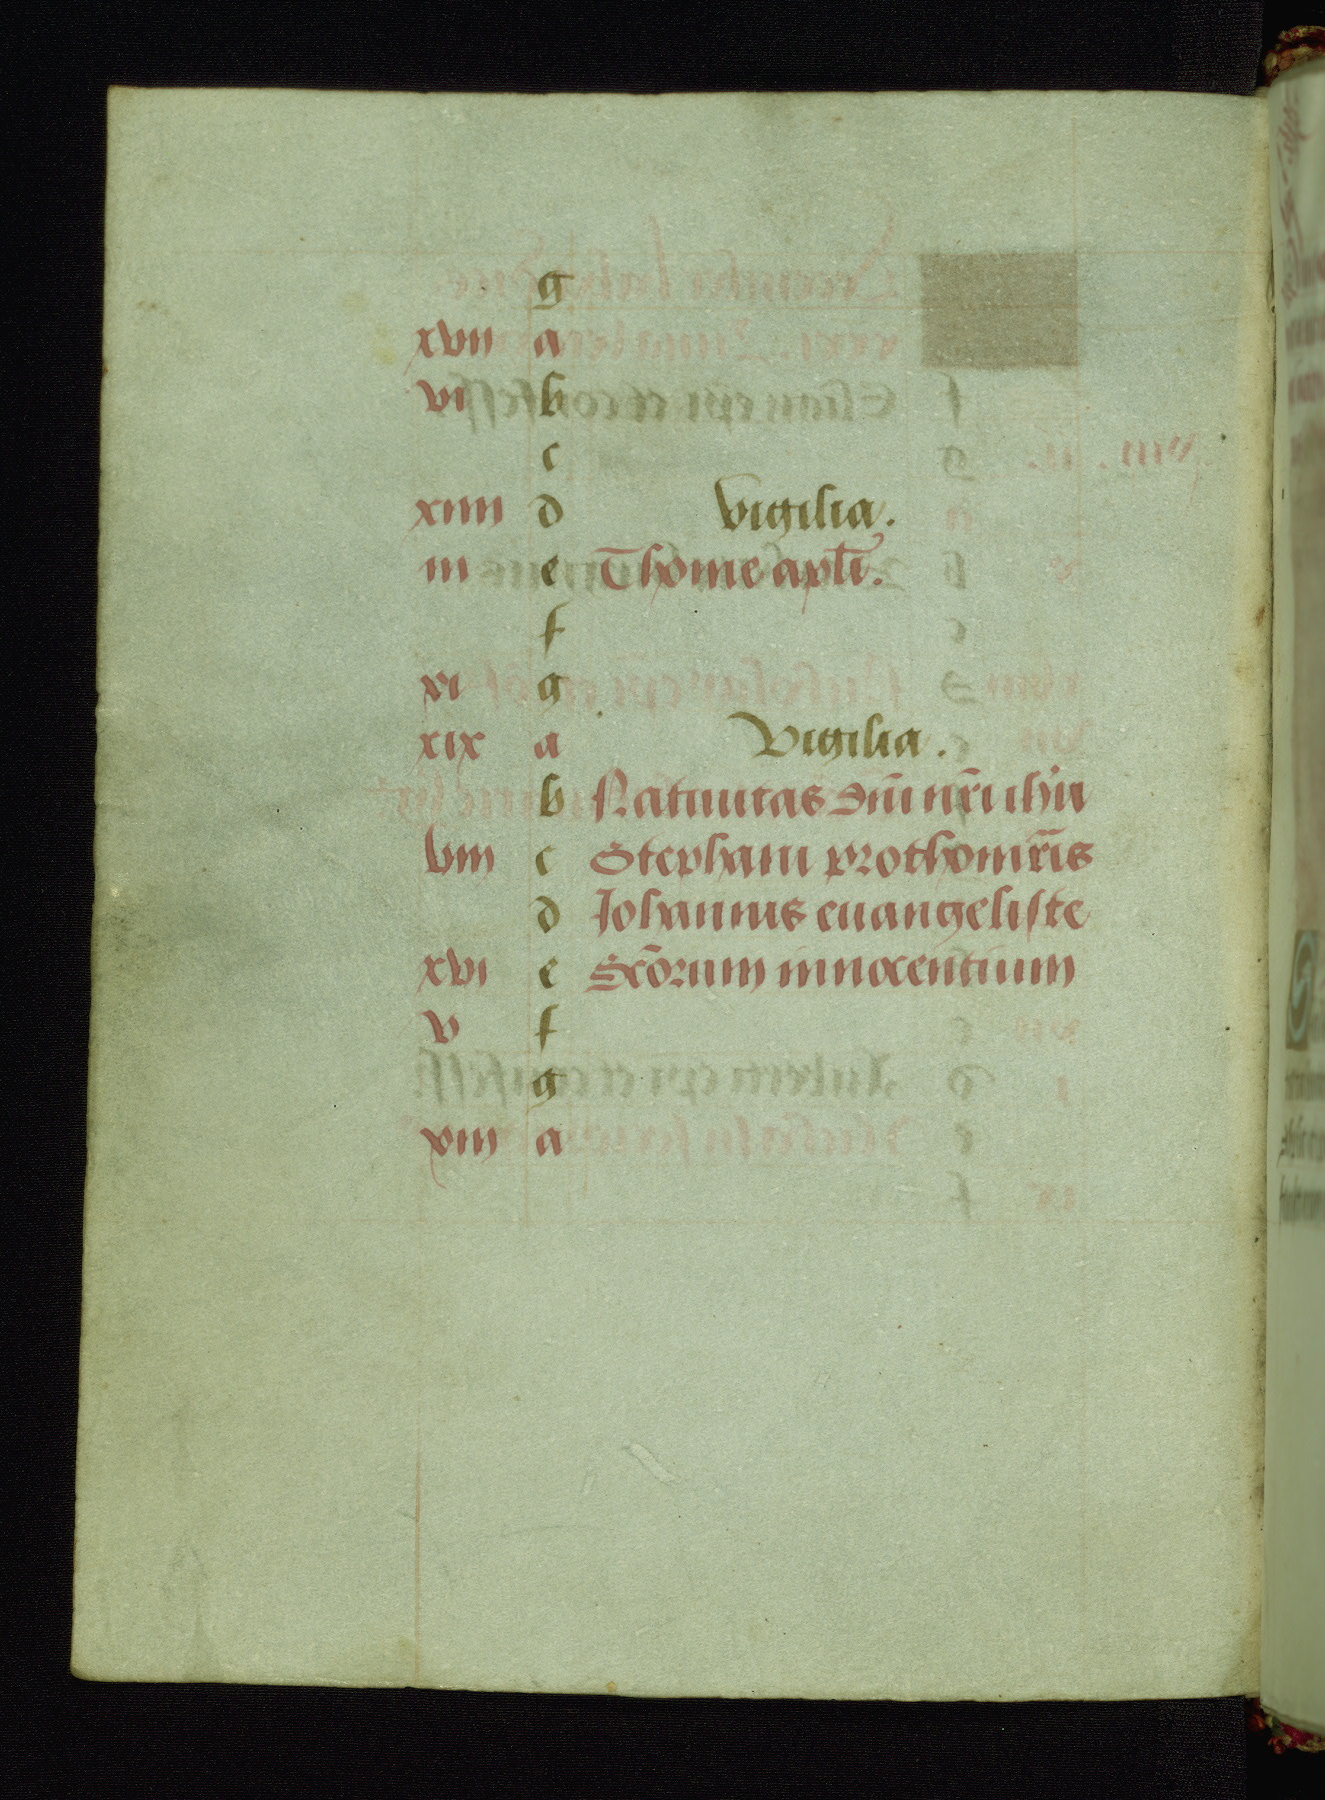 g
xvii a
vi b
c
xiiii d Vigilia.
iii e Thome apłi.
f
xi g
xix a Vigilia.
b Natiuitas dn̄i nr̄i ih̄u
viii c Stephani prothomr̄is
d Johannis euangeliste
xvi e Sc̄orum innocentium
v f
g
xiii a